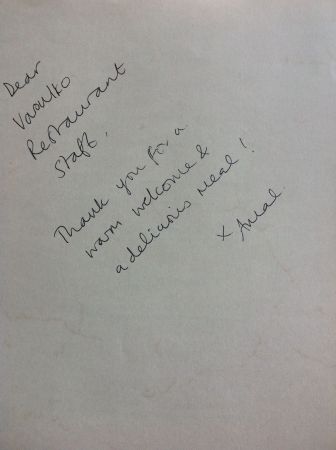 Dear
Vasulko
Restaurant
Staff,
Thank you for a
warm welcome &
a delicious meal!
x Amal.